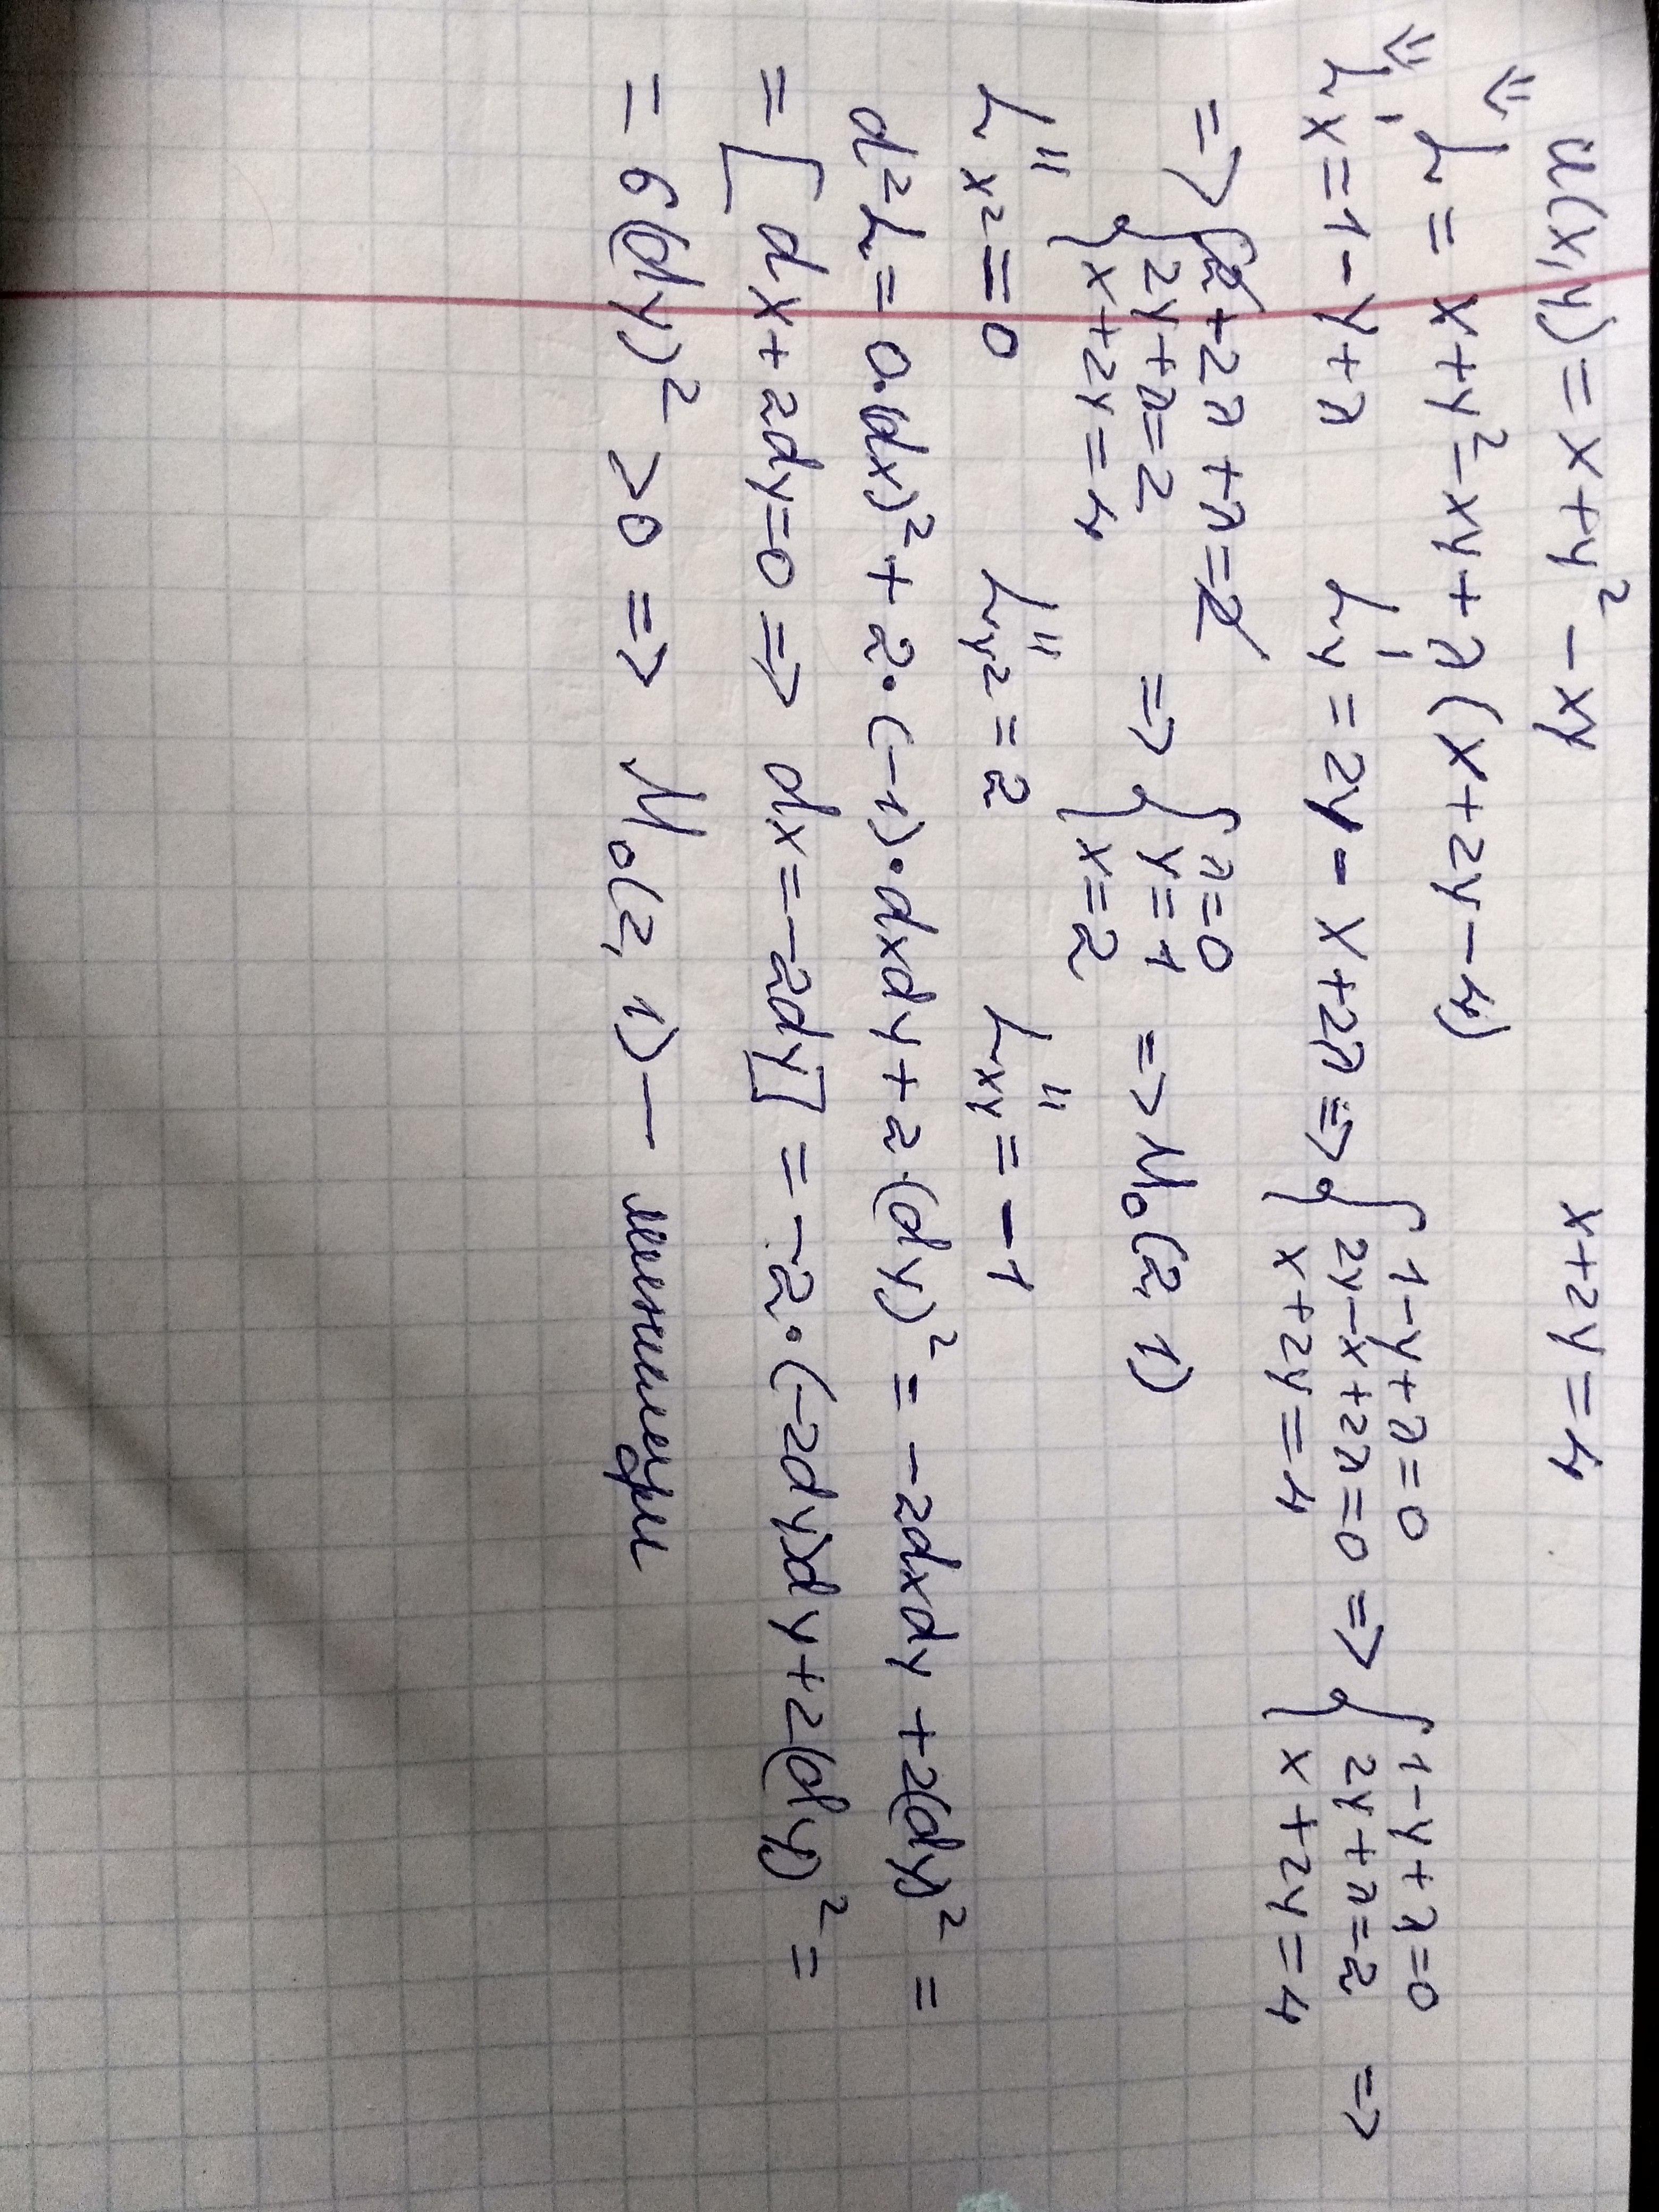 u(x,y) = x+y² - xy x+2y=4
⇓ L = x+y²-xy+λ(x+2y-4)
⇓ L'x = 1-y+λ L'y = 2y-x+2λ => { 1-y+λ=0 2y-x+2λ=0 x+2y=4 => { 1-y+λ=0 2y+λ=2 x+2y=4 =>
=> { 2+2λ+λ=2 2y+λ=2 x+2y=4 => { λ=0 y=1 x=2 => M₀(2, 1)
L''x² = 0 L''y² = 2 L''xy = -1
d²L = 0·(dx)² + 2·(-1)·dxdy + 2·(dy)² = -2dxdy + 2(dy)² =
= [dx+2dy=0 => dx=-2dy] = -2·(-2dy)dy+2(dy)² =
= 6(dy)² >0 => M₀(2, 1) — минимум